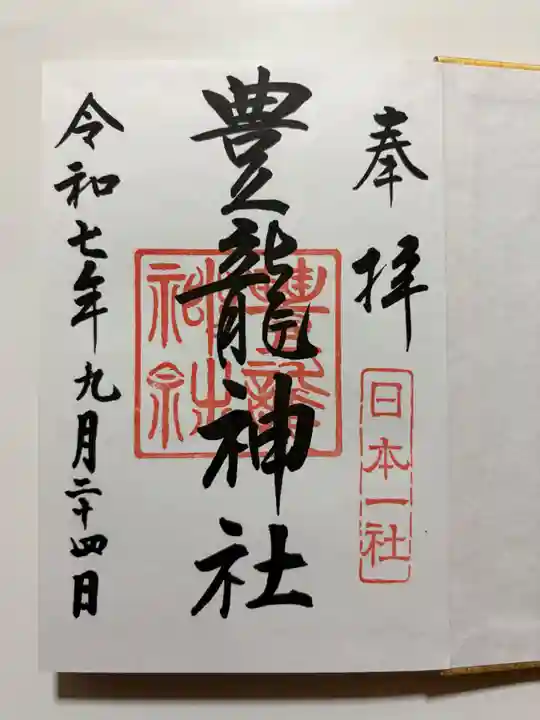 奉拝
日本一社
豊龍神社
豊龍神社
令和七年九月二十四日